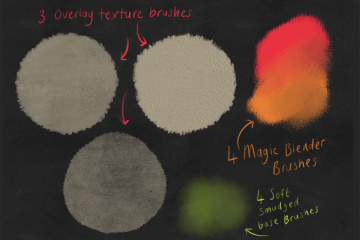 3 Overlay texture brushes
4 Magic Blender
Brushes
4 Soft
smudged
base Brushes